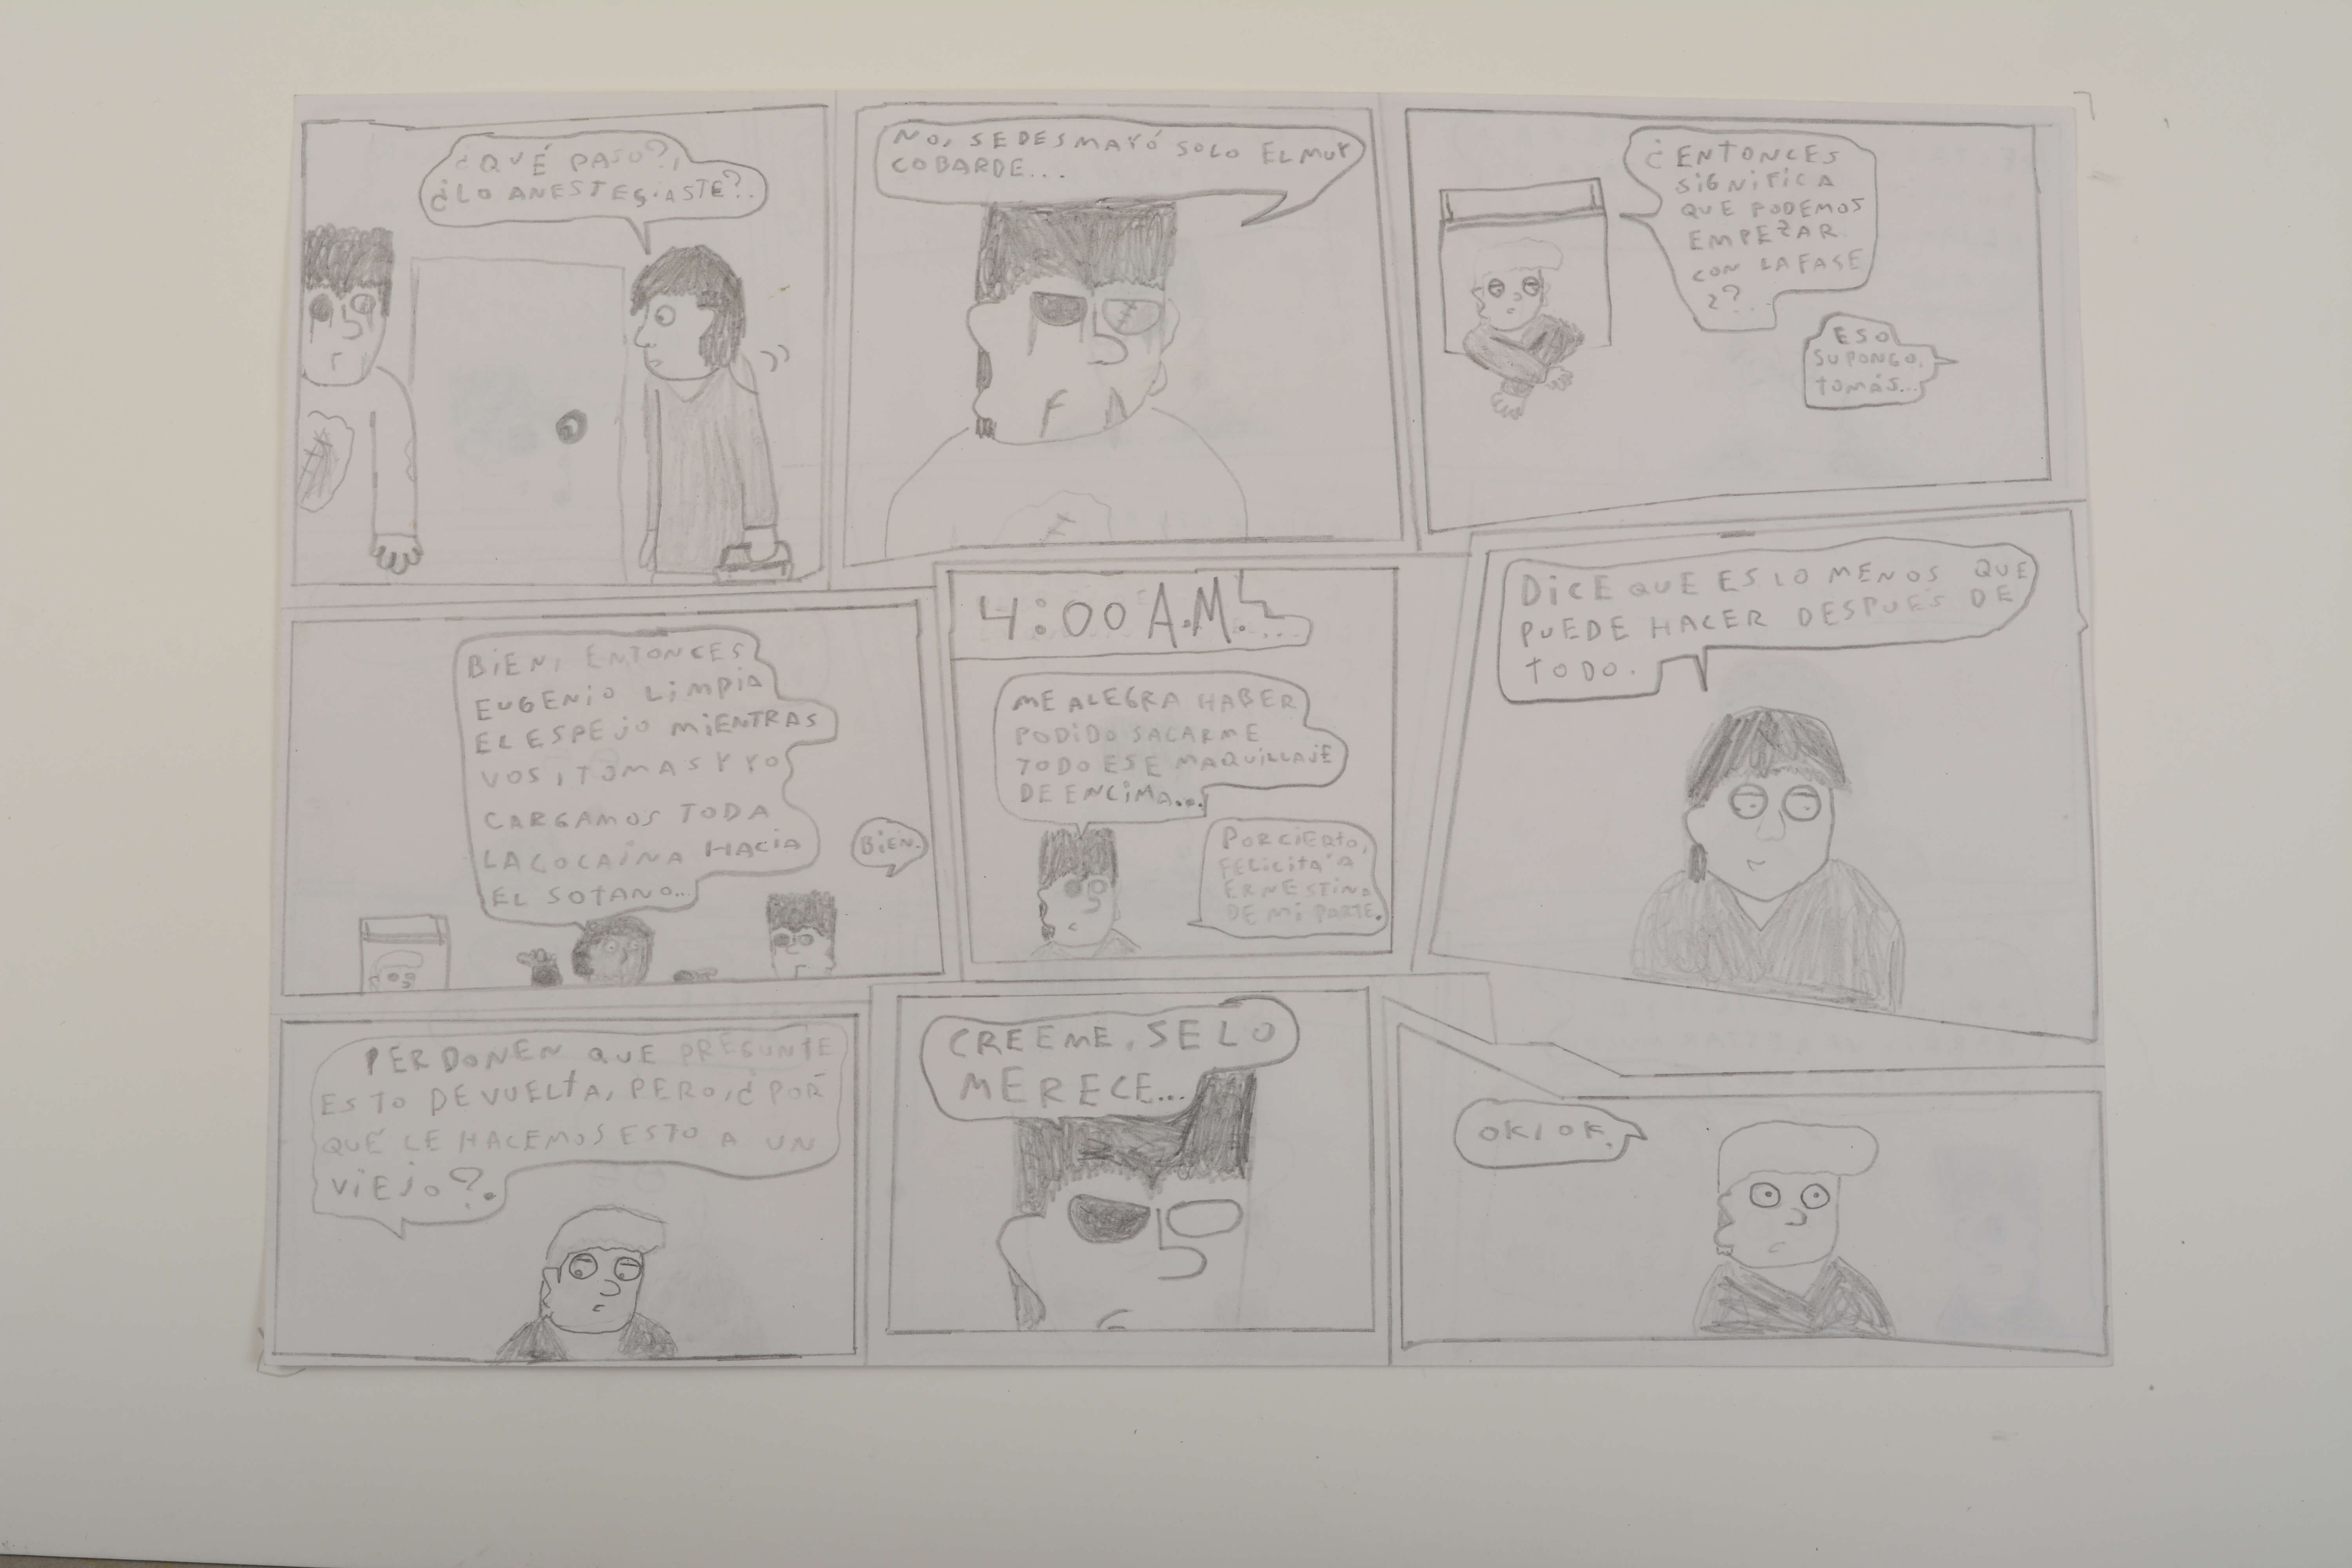 ¿QUÉ PASO?,
¿LO ANESTESIASTE?..
NO, SE DESMAYÓ SOLO EL MUY
COBARDE...
¿ENTONCES
SIGNIFICA
QUE PODEMOS
EMPEZAR
CON LA FASE
2?..
ESO
SUPONGO,
TOMÁS...
BIEN, ENTONCES
EUGENIO LIMPIA
EL ESPEJO MIENTRAS
VOS, TOMAS Y YO
CARGAMOS TODA
LA COCAÍNA HACIA
EL SOTANO...
BIEN.
4:00 A.M....
ME ALEGRA HABER
PODIDO SACARME
TODO ESE MAQUILLAJE
DE ENCIMA...
POR CIERTO,
FELICITA A
ERNESTINA
DE MI PARTE.
DICE QUE ES LO MENOS QUE
PUEDE HACER DESPUÉS DE
TODO.
PERDONEN QUE PREGUNTE
ESTO DE VUELTA, PERO, ¿POR
QUÉ LE HACEMOS ESTO A UN
VIEJO?.
CREEME, SE LO
MERECE...
OK, OK.